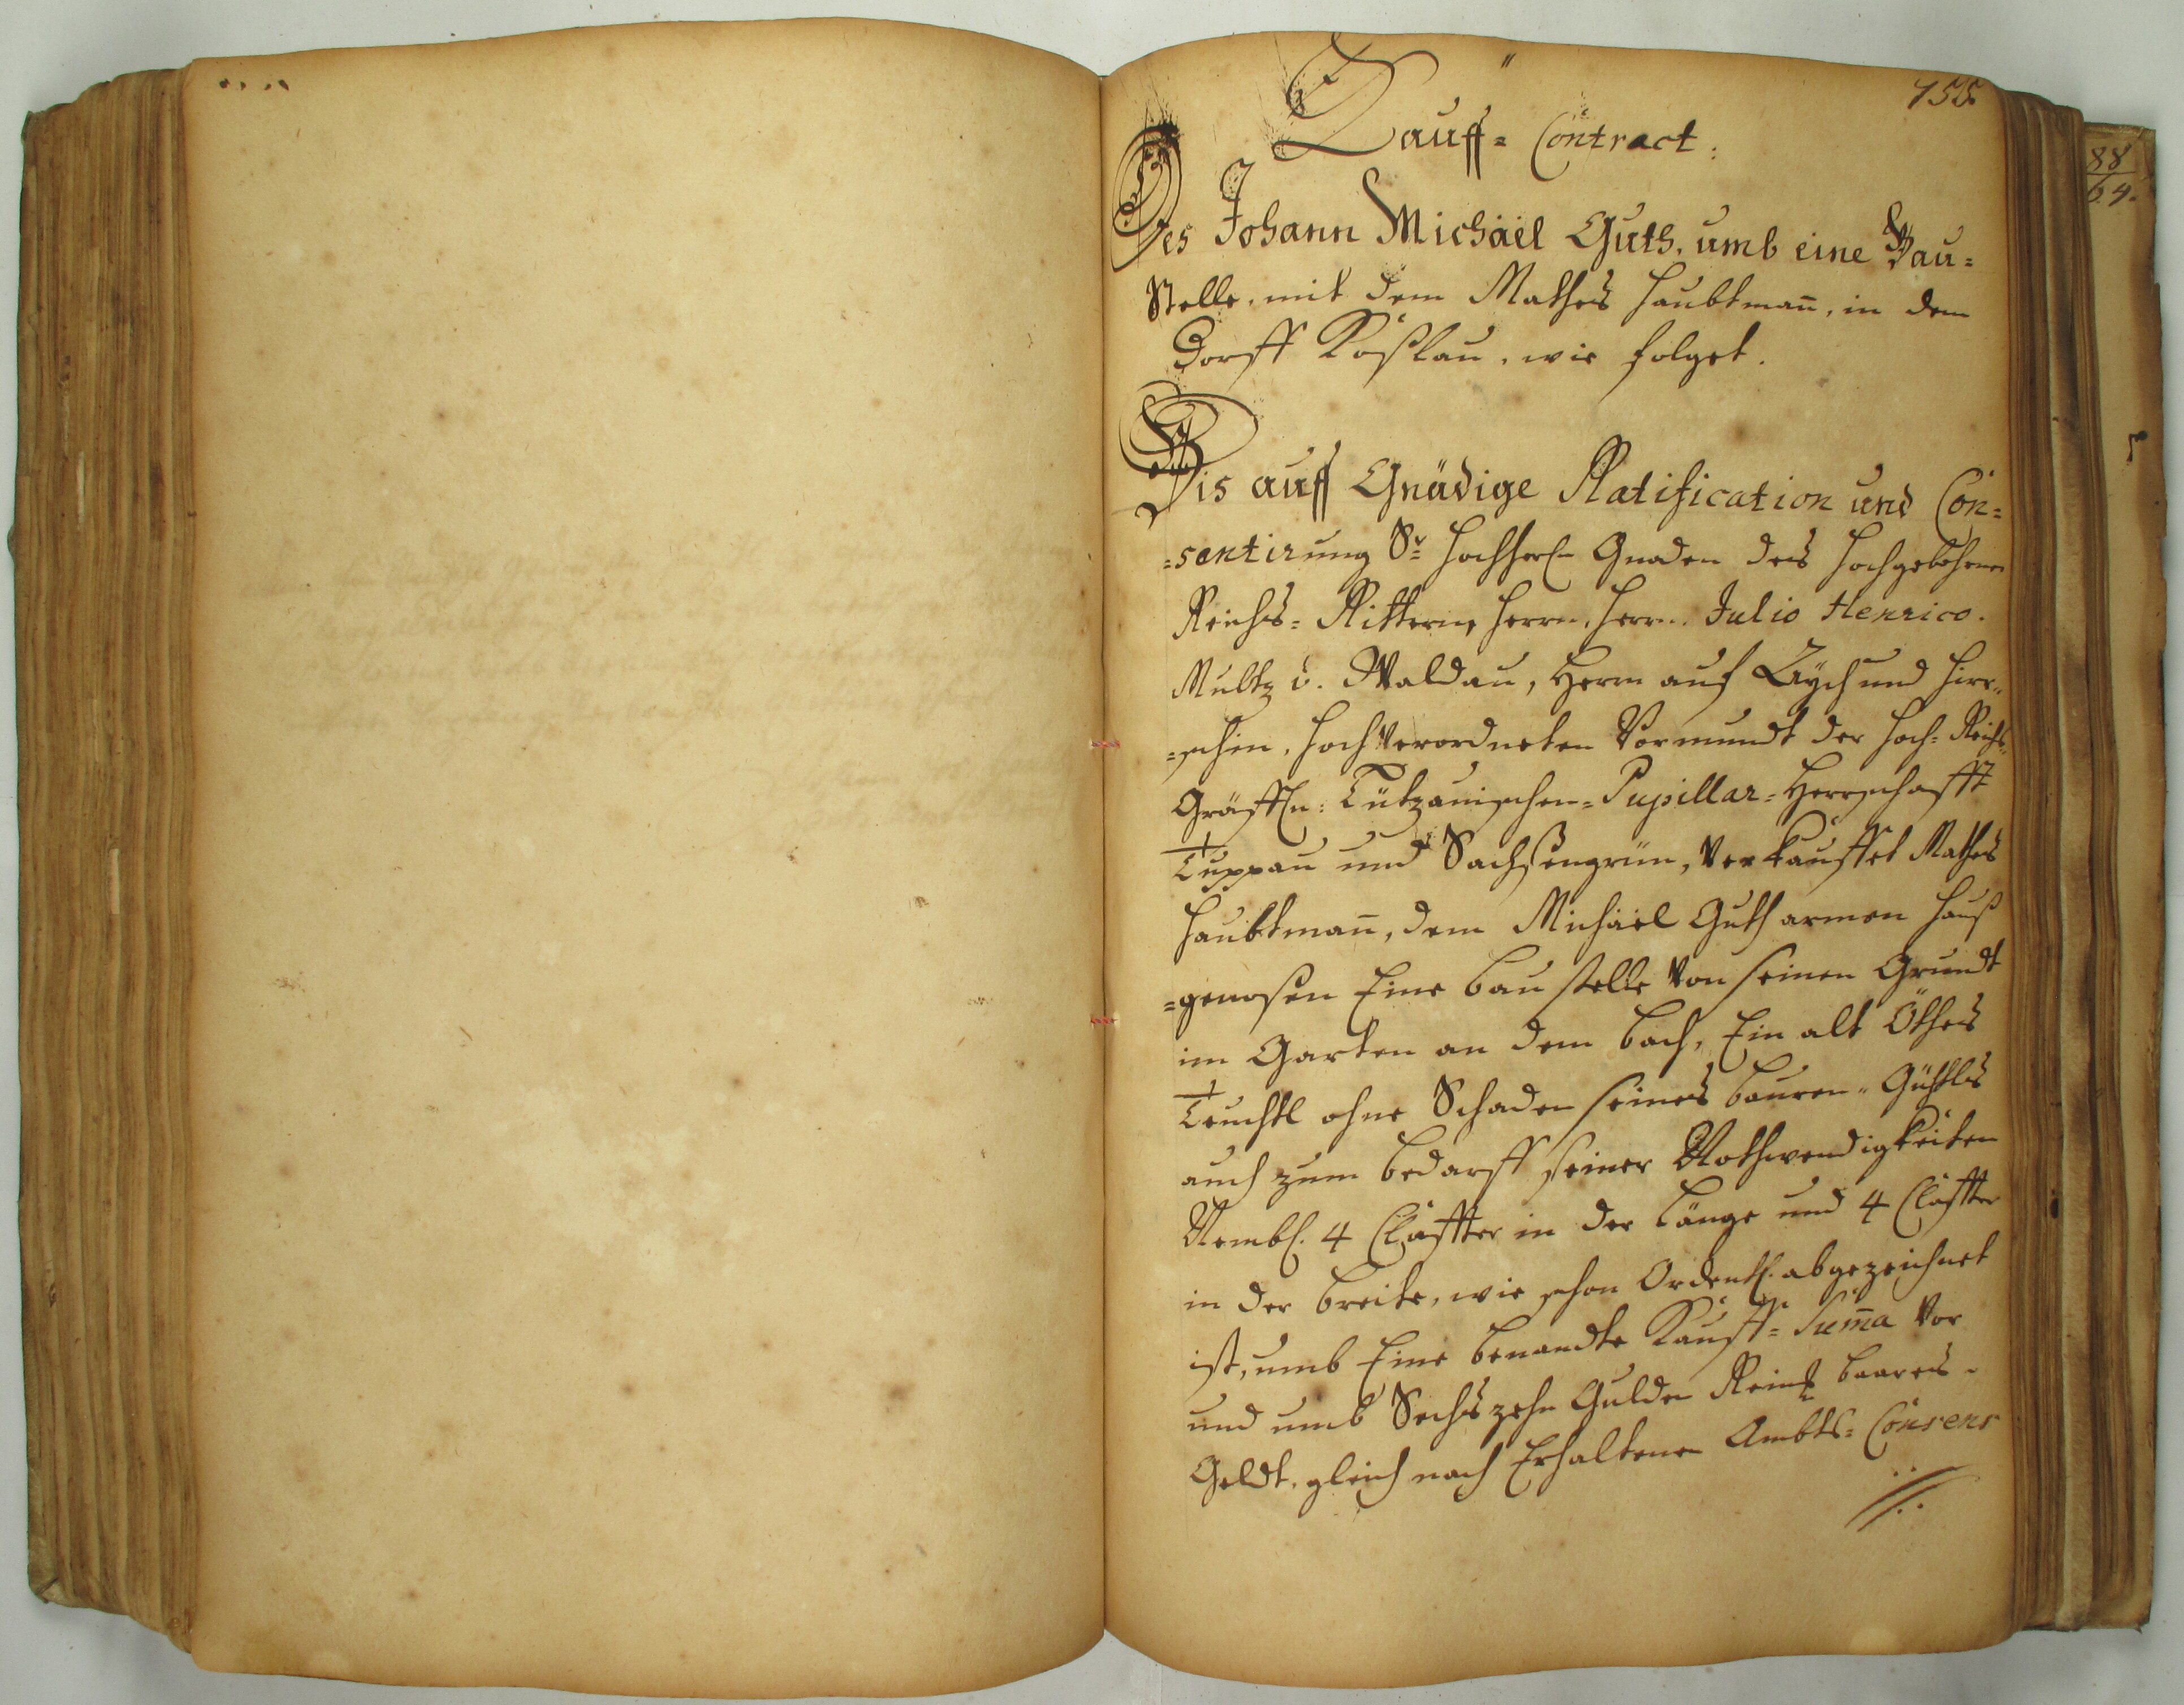 155
Kauff= Contract:
Des Johann Michäel Guth. umb eine Bau=
Stelle. mit dem Mathes Haubtman̄, in dem
Dorff Koßlau, wie folget.
Bis auff Gnädige Ratification und Con=
=sentirung Sr Hochherl. Gnaden des Hochgebohrnen
Reichs= Rittern, Herrn, Herrn. Julio Henrico.
Multz v. Waldau, Herrn auf und Hir=
=schin, Hoch Verordneten Vormundt der Hoch= Reichs=
Gräffl: Lützauischen= Pupillar= Herrschafft
Tuppau und Sachßengrün, Verkauffet Mathes
Haubtman̄, dem Michäel Guth armen Hauß
=genoßen Eine bau stelle Von seinen Grundt
im Garten an dem bach, Ein alt Öthes
Teuchtl ohne Schaden seines bauren= Güthls
auch zum bedarff seiner Nothwendigkeiten
Nembl. 4 Claffter in der Länge und 4 Claffter
in der breite, wie schon Ordentl. abgezeichnet
ist, umb Eine benandte Kauff= Sum̄a Vor
und umb Sechszehn Gulden Reinl. baares
Geldt, gleich nach Erhaltenen Ambts= Consens
88
64.